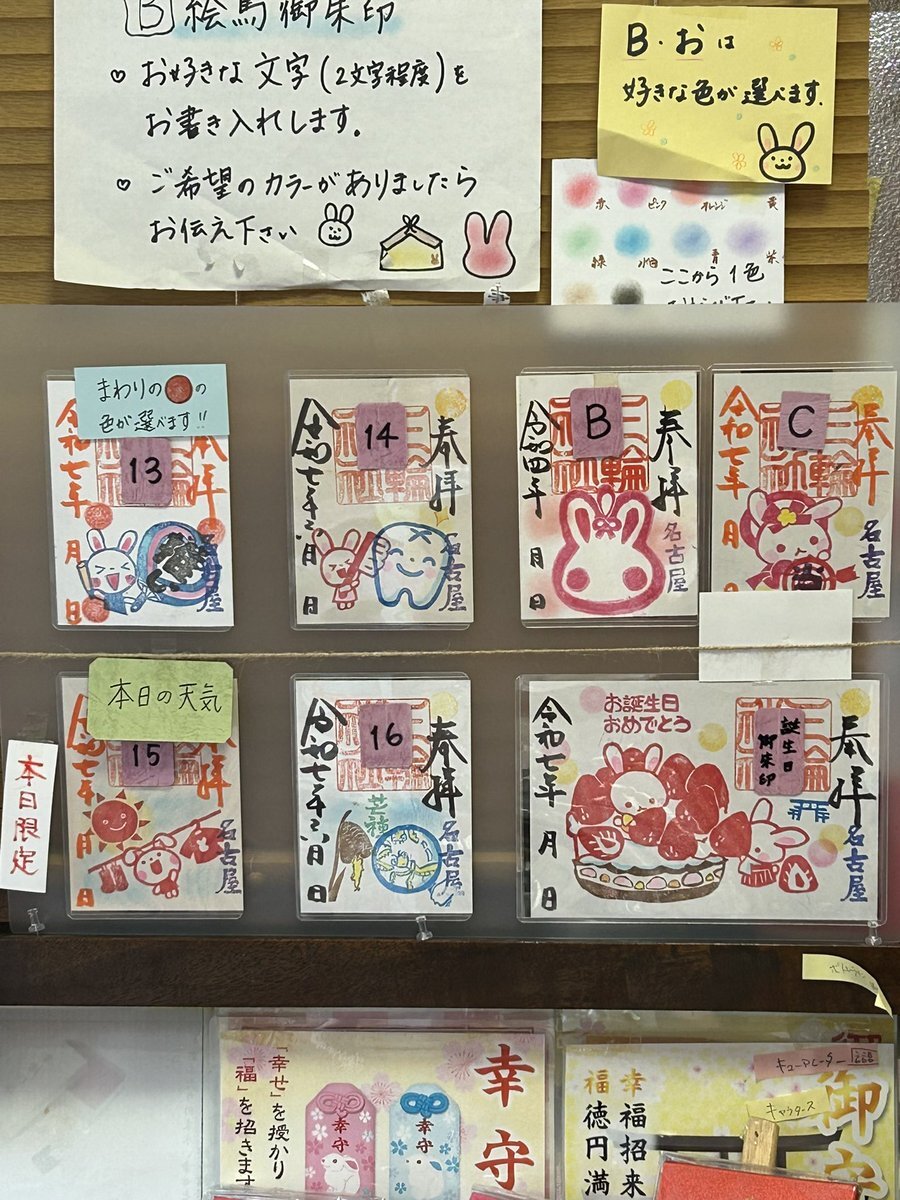 B 絵馬御朱印
♡ お好きな文字(2文字程度)を
お書き入れします。
♡ ご希望のカラーがありましたら
お伝え下さい
B・おは
好きな色が選べます。
赤 ピンク オレンジ 黄
緑 水色 青 紫
ここから1色
まわりの●の
色が選べます!!
13
奉拝
令和七年
月
日
名古屋
14
奉拝
三輪神社
令和七年六月
日
名古屋
B
奉拝
三輪神社
令和四年
月
日
名古屋
C
奉拝
三輪神社
令和七年
月
日
名古屋
本日限定
本日の天気
15
令和七年
月
日
名古屋
16
奉拝
令和七年六月
日
芒種
名古屋
お誕生日
おめでとう
誕生日
御朱印
奉拝
令和七年
月
日
名古屋
幸守
「幸せ」を授かり
「福」を招きます
幸守
幸守
キューアレーター
キャウタース
御守
幸福招来
福徳円満